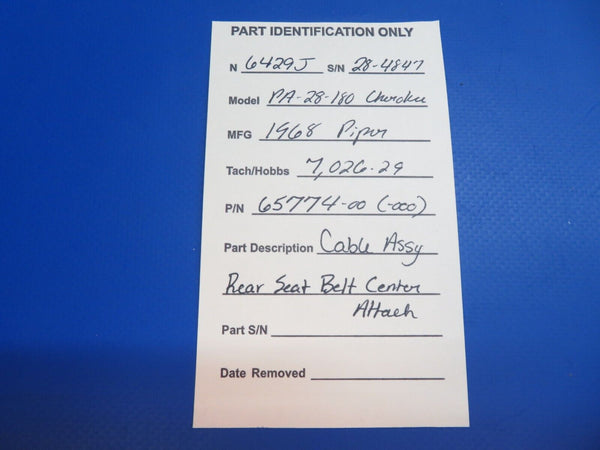 PART IDENTIFICATION ONLY
N 6429J S/N 28-4847
Model PA-28-180 Cherokee
MFG 1968 Piper
Tach/Hobbs 7,026.29
P/N 65774-00 (-000)
Part Description Cable Assy
Rear Seat Belt Center
Attach
Part S/N
Date Removed